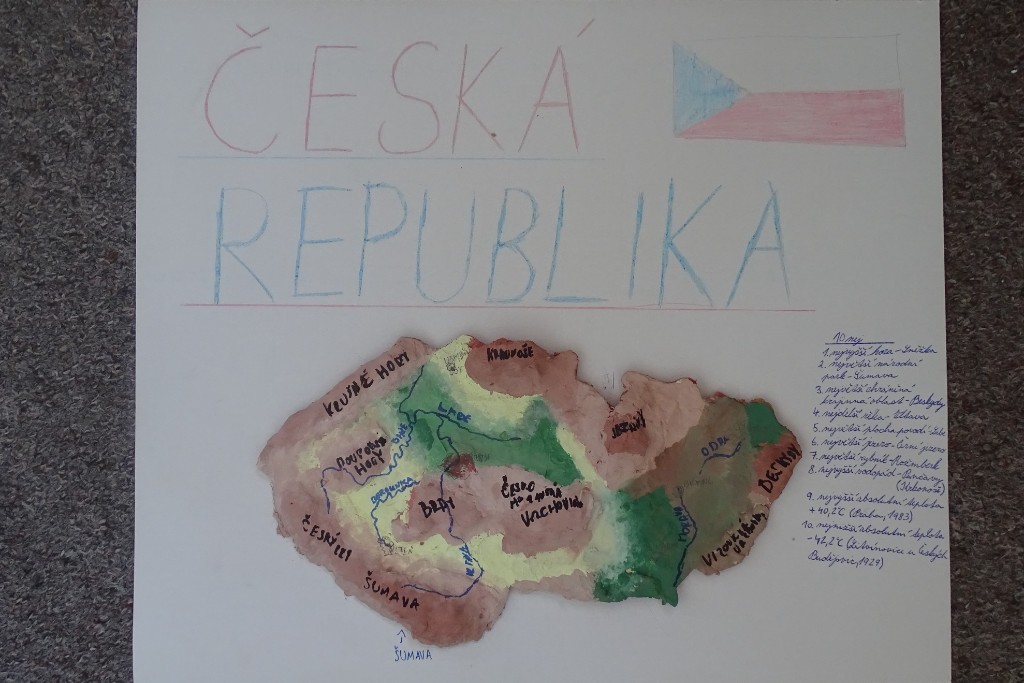 ČESKÁ
REPUBLIKA
KRUŠNÉ HORY
KRKONOŠE
LABE
OHŘE
DOUPOVSKÉ
HORY
BEROUNKA
BRDY
ČESKO
MORAVSKÁ
VRCHOVINA
JESENÍKY
ODRA
BESKYDY
MORAVA
VIZOVICKÁ
ČESKÝ LES
VLTAVA
ŠUMAVA
ŠUMAVA
10 nej
1. nejvyšší hora - Sněžka
2. největší národní
park - Šumava
3. největší chráněná
krajinná oblast - Beskydy
4. nejdelší řeka - Vltava
5. největší plocha povodí - Labe
6. největší jezero - Černé jezero
7. největší rybník - Rožmberk
8. nejvyšší vodopád - Pančavský
(Krkonoše)
9. nejvyšší absolutní teplota
+ 40,2°C (Praha, 1983)
10. nejnižší absolutní teplota
- 42,2°C (Litvínovice u Českých
Budějovic, 1929)